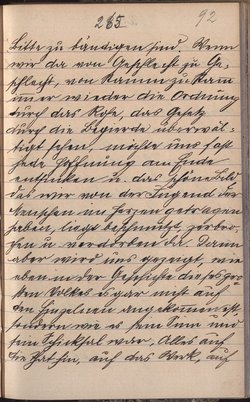 265 92
Bitte zu bändigen sind. Wenn
wir da von Geschlecht zu Ge-
schlecht, von Stamm zu Stamm
immer wieder die Ordnung
durch das Rohe, das Gesetz
durch die Begierde überwäl-
tigt sehen, möchte uns fast
jede Hoffnung am Ende
entsinken u. das schöne Bild
das wir von der Jugend der
Menschen im Herzen getragen
haben, liegt beschmutzt, zerbro-
chen u. verdorben da. Dann
aber wird uns gezeigt, wie
eben in der Geschichte dieses gro-
ßen Volkes es gar nicht auf
den Einzelnen angekommen ist
sondern wie es sein Sinn und
sein Schicksal war, Alles auf
die That hin, auf das Werk, auf